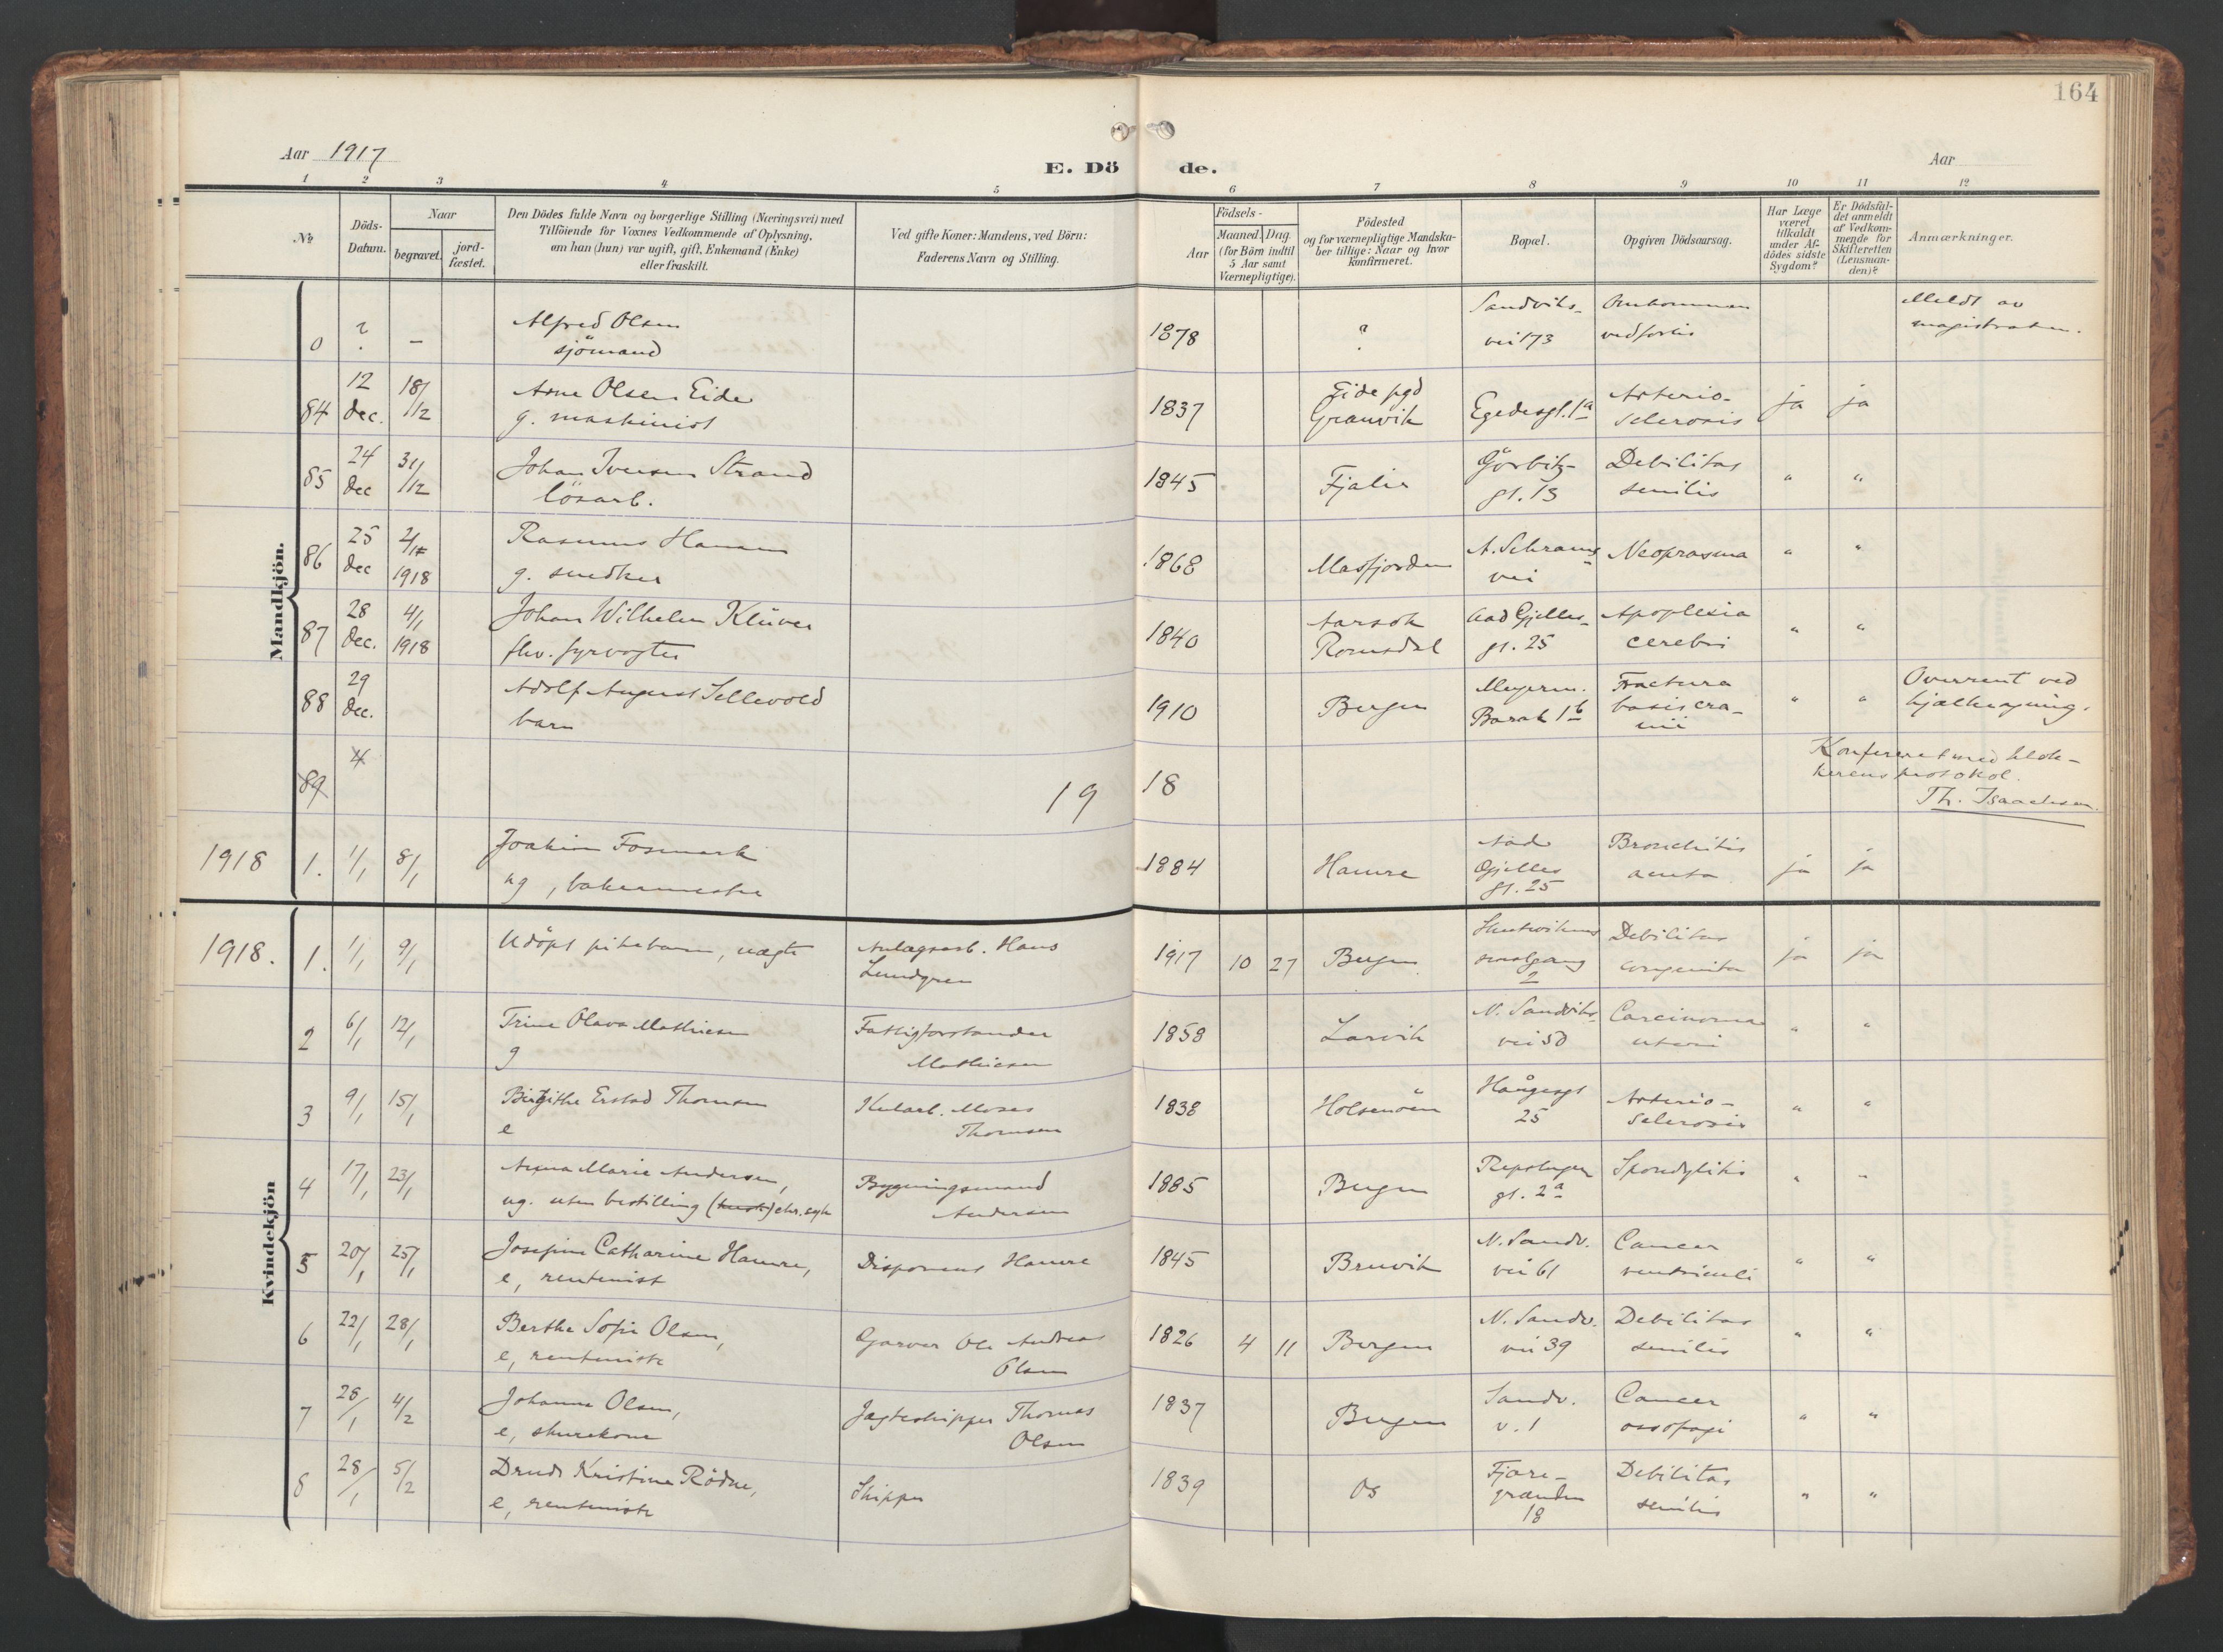 164
Aar 1917
E. Dö de.
Aar
1 2 3 4 5 6 7 8 9 10 11 12
№
Döds-Datum.
Naar
begravet.
jord-fæstet.
Den Dödes fulde Navn og borgerlige Stilling (Næringsvei) med
Tilföiende for Voxnes Vedkommende af Oplysning,
om han (hun) var ugift, gift, Enkemand (Enke)
eller fraskilt.
Ved gifte Koner: Mandens, ved Börn:
Faderens Navn og Stilling.
Födsels-
Aar
Maaned. Dag.
(for Börn indtil
5 Aar samt
Værnepligtige).
Födested
og for værnepligtige Mandska-
ber tillige: Naar og hvor
konfirmeret.
Bopæl.
Opgiven Dödsaarsag.
Har Læge
været
tilkaldt
under Af-
dödes sidste
Sygdom?
Er Dödsfal-
det anmeldt
af Vedkom-
mende for
Skifteretten
(Lensman-
den)?
Anmærkninger.
Mandkjön.
0 ? – Alfred Olsen 1878 ? Sandviks- Omkommen Meldt av
sjömand vei 173 ved forlis magistraten.
84 12 dec. 18/12 Arne Olsen Eide 1837 Eide pgd Egedesgt. 1a Arterio- ja ja
g. maskinist Granvik sclerosis
85 24 dec 31/12 Johan Iversen Strand 1845 Fjaler Görbitz- Debilitas " "
lösarb. gt. 13 senilis
86 25 dec 2/1 1918 Rasmus Hansen 1868 Masfjorden A. Schrams Neoprasma " "
g. snedker vei
87 28 dec. 4/1 1918 Johan Wilhelm Klüver 1840 Aarsok Aad Gjelles- Apoplexia " "
fhv. fyrvogter Romsdal gt. 25 cerebri
88 29 dec. Adolf August Sellevold 1910 Bergen Meyerm. Fractura " " Overrent ved
barn Barak 1b basis cra- kjælkeaging.
nii
89 4 1918 Konfereret med klok-
kerens protokol.
Th. Isaachsen.
1918 1. 1/1 8/1 Joakim Fosmark 1884 Hamre Aad Bronchitis ja ja
ug, bakermester Gjelles acuta
gt. 25
Kvindekjön
1918. 1. 1/1 9/1 Udöpt pikebarn, uægte Anlægsarb. Hans 1917 10 27 Bergen Skutevikens Debilitas ja ja
Lundgren smalgang congenita
2
2 6/1 12/1 Trine Olava Mathiesen Fattigforstander 1858 Larvik N. Sandviks- Carcinoma " "
g Mathiesen vei 50 uteri
3 9/1 15/1 Birgithe Erstad Thomsen Kularb. Moses 1838 Holsenöen Haugesgt Arterio- " "
e Thomsen 25 sclerosis
4 17/1 23/1 Anna Marie Andersen, Bygningsmand 1885 Bergen Repslager Spondylitis " "
ug. uten bestilling (husb) chr. syk Andersen gt. 2a
5 20/1 25/1 Josefine Catharine Hamre, Disponent Hamre 1845 Bruvik N. Sandv. Cancer " "
e, rentenist vei 61 ventriculi
6 22/1 28/1 Berthe Sofie Olsen, Garver Ole Andreas 1826 4 11 Bergen N. Sandv. Debilitas " "
e, renteniste Olsen vei 39 senilis
7 28/1 4/2 Johanne Olsen, Jagteskipper Thomas 1837 Bergen Sandv. Cancer " "
e, skurekone Olsen v. 1 oesofagi
8 28/1 5/2 Drude Kristine Rödne, Skipper 1839 Os Fjære- Debilitas " "
e, renteniste grænden senilis
18